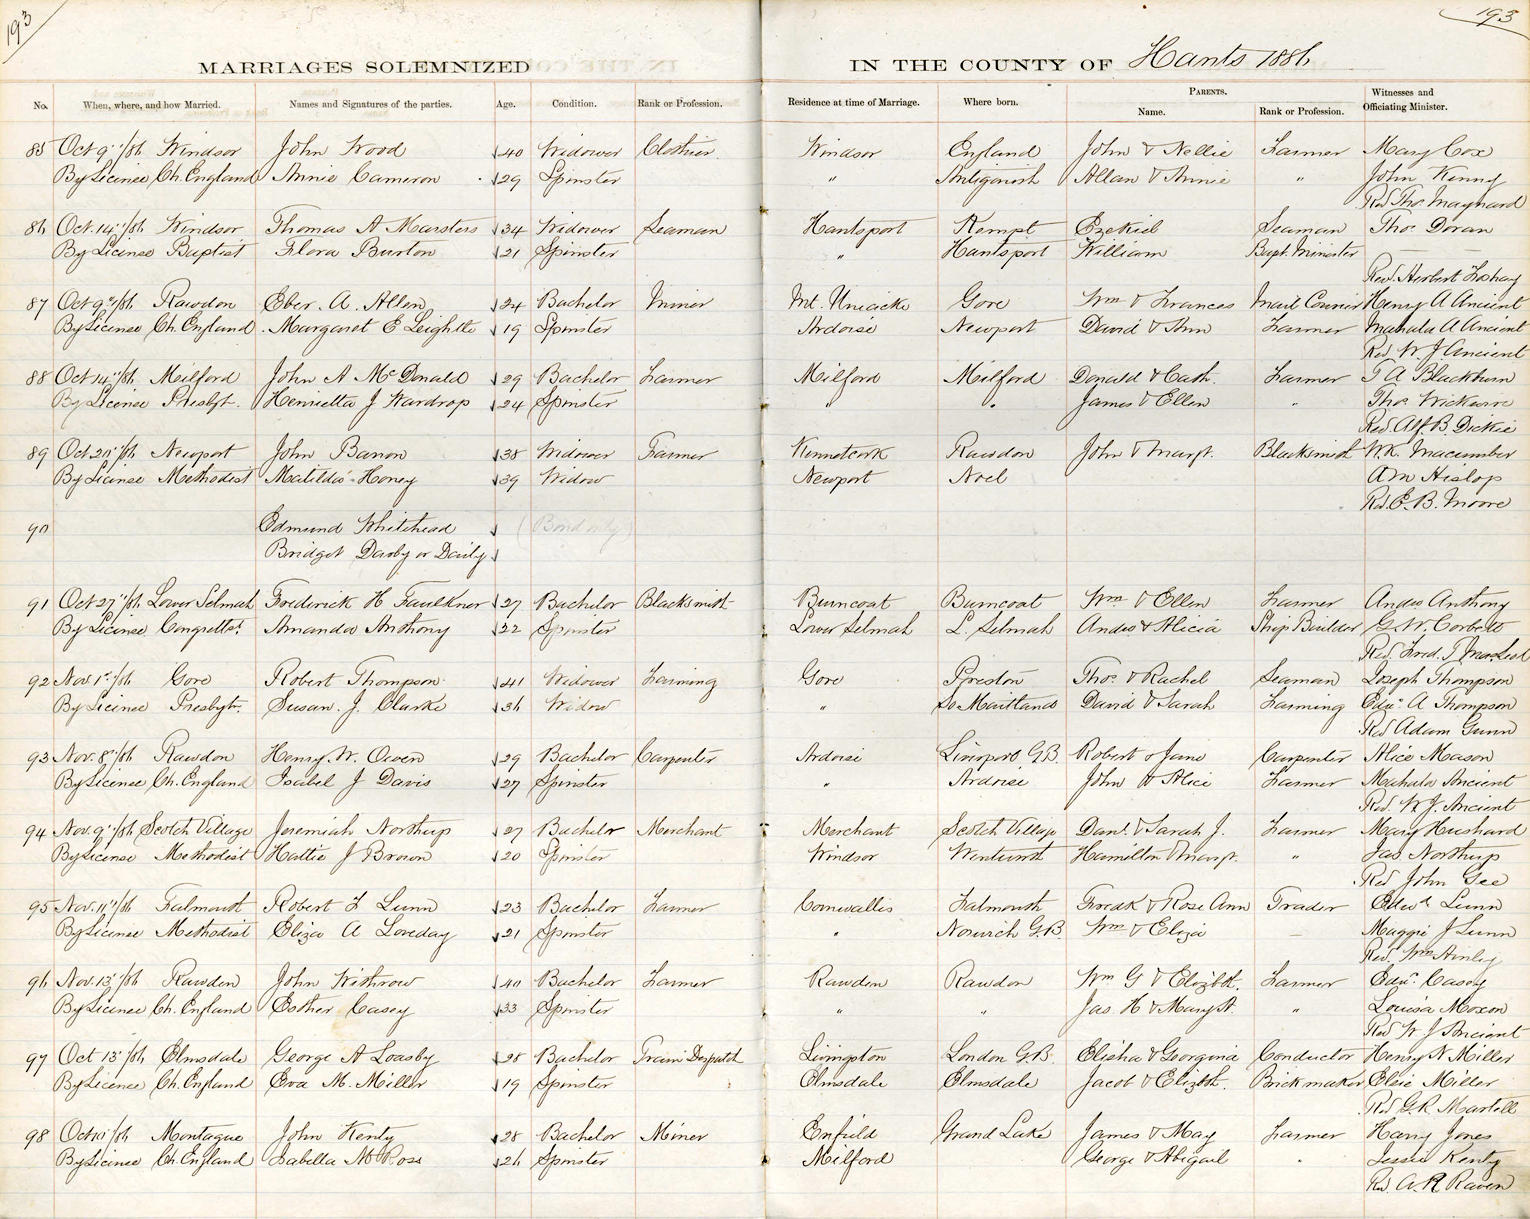 193 193
MARRIAGES SOLEMNIZED IN THE COUNTY OF Hants 1886
No. When, where, and how Married. Names and Signatures of the parties. Age. Condition. Rank or Profession. Residence at time of Marriage. Where born. PARENTS. Name. Rank or Profession. Witnesses and Officiating Minister.
85 Oct 9"/86 Windsor John Wood 40 Widower Clothier Windsor England John & Nellie Farmer Mary Cox
By Licinse Ch. England Annie Cameron 29 Spinster " Antigonish Allan & Annie " John Kenny
Rev Thos Maynard
86 Oct. 14"/86 Windsor Thomas A Marsters 34 Widower Seaman Hantsport Kempt Ezekiel Seaman Thos Doran
By Licinse Baptist Flora Burton 21 Spinster " Hantsport William Bapt. Minister
Rev. Herbert Foshay
87 Oct 9"/86 Rawdon Eber. A. Allen 24 Bachelor Miner Mt. Uniacke Gore Wm & Frances Mail Courier Henry A Ancient
By Licinse Ch. England Margaret E Leighttle 19 Spinster Ardoise Newport David & Ann Farmer Mahala A Ancient
Rev W. J Ancient
88 Oct 14"/86 Milford John A McDonald 29 Bachelor Farmer Milford Milford Donald & Cath. Farmer T A Blackburn
By Licinse Presbyt. Henrietta J Wardrop 24 Spinster " " James & Ellen " Thos Wickwire
Rev. Alf. B. Dickie
89 Oct 20"/86 Newport John Barron 38 Widower Farmer Kennetcook Rawdon John & Margt. Blacksmith W.R. Macumber
By Licinse Methodist Matilda Honey 39 Widow Newport Noel A M Hislop
Rev. E. B. Moore
90 Edmund Whitehead (Bond only)
Bridget Darby or Daily
91 Oct 27"/86 Lower Selmah Frederick H Faulkner 27 Bachelor Blacksmith Burncoat Burncoat Wm & Ellen Farmer Andw Anthony
By Licinse Congrettl. Amanda Anthony 22 Spinster Lower Selmah L. Selmah Andw & Alicia Ship Builder G. W. Corbett
Rev. Fred. T MacLeod
92 Nov. 1st/86 Gore Robert Thompson 41 Widower Farming Gore Preston Thos & Rachel Seaman Joseph Thompson
By Licinse Presbyt. Susan. J. Clarke 36 Widow " So Maitland David & Sarah Farming Edwd A Thompson
Rev Adam Gunn
93 Nov. 8"/86 Rawdon Henry. W. Owen 29 Bachelor Carpenter Ardoise Liverpool G.B. Robert & Jane Carpenter Alice Mason
By Licinse Ch. England Isabel J Davis 27 Spinster " Ardoise John & Alice Farmer Mahala Ancient
Rev. W. J. Ancient
94 Nov. 9"/86 Scotch Village Jeremiah Northup 27 Bachelor Merchant Merchant Scotch Village Danl. & Sarah J. Farmer Mary Hushard
By Licinse Methodist Hattie J Brown 20 Spinster Windsor Wentworth Hamilton & Margt. " Jas. Northup
Rev John Gee
95 Nov. 11"/86 Falmouth Robert L Lunn 23 Bachelor Farmer Cornwallis Falmouth Fredk & Rose Ann Trader Edwd Lunn
By Licinse Methodist Eliza A Loveday 21 Spinster " Norwich G.B. Wm & Eliza Maggie J Lunn
Rev. Wm Ainley
96 Nov. 13"/86 Rawdon John Withrow 40 Bachelor Farmer Rawdon Rawdon Wm G & Elizbth. Farmer Edwd Casey
By Licinse Ch. England Esther Casey 33 Spinster " " Jas. H & Mary A. " Louisa Moxon
Rev W J Ancient
97 Oct 13"/86 Elmsdale George A Loasby 28 Bachelor Train Despatch Livingston London G.B. Elisha & Georgina Conductor Henry N Miller
By Licinse Ch. England Eva M. Miller 19 Spinster Elmsdale Elmsdale Jacob & Elizbth. Brickmaker Elsie Miller
Rev G. R. Martell
98 Oct /86 Montague John Kenty 28 Bachelor Miner Enfield Grand Lake James & May Farmer Harry Jones
By Licinse Ch. England Isabella McRoss 26 Spinster Milford George & Abigail " Jessie Kenty
Rev. A. R Raven